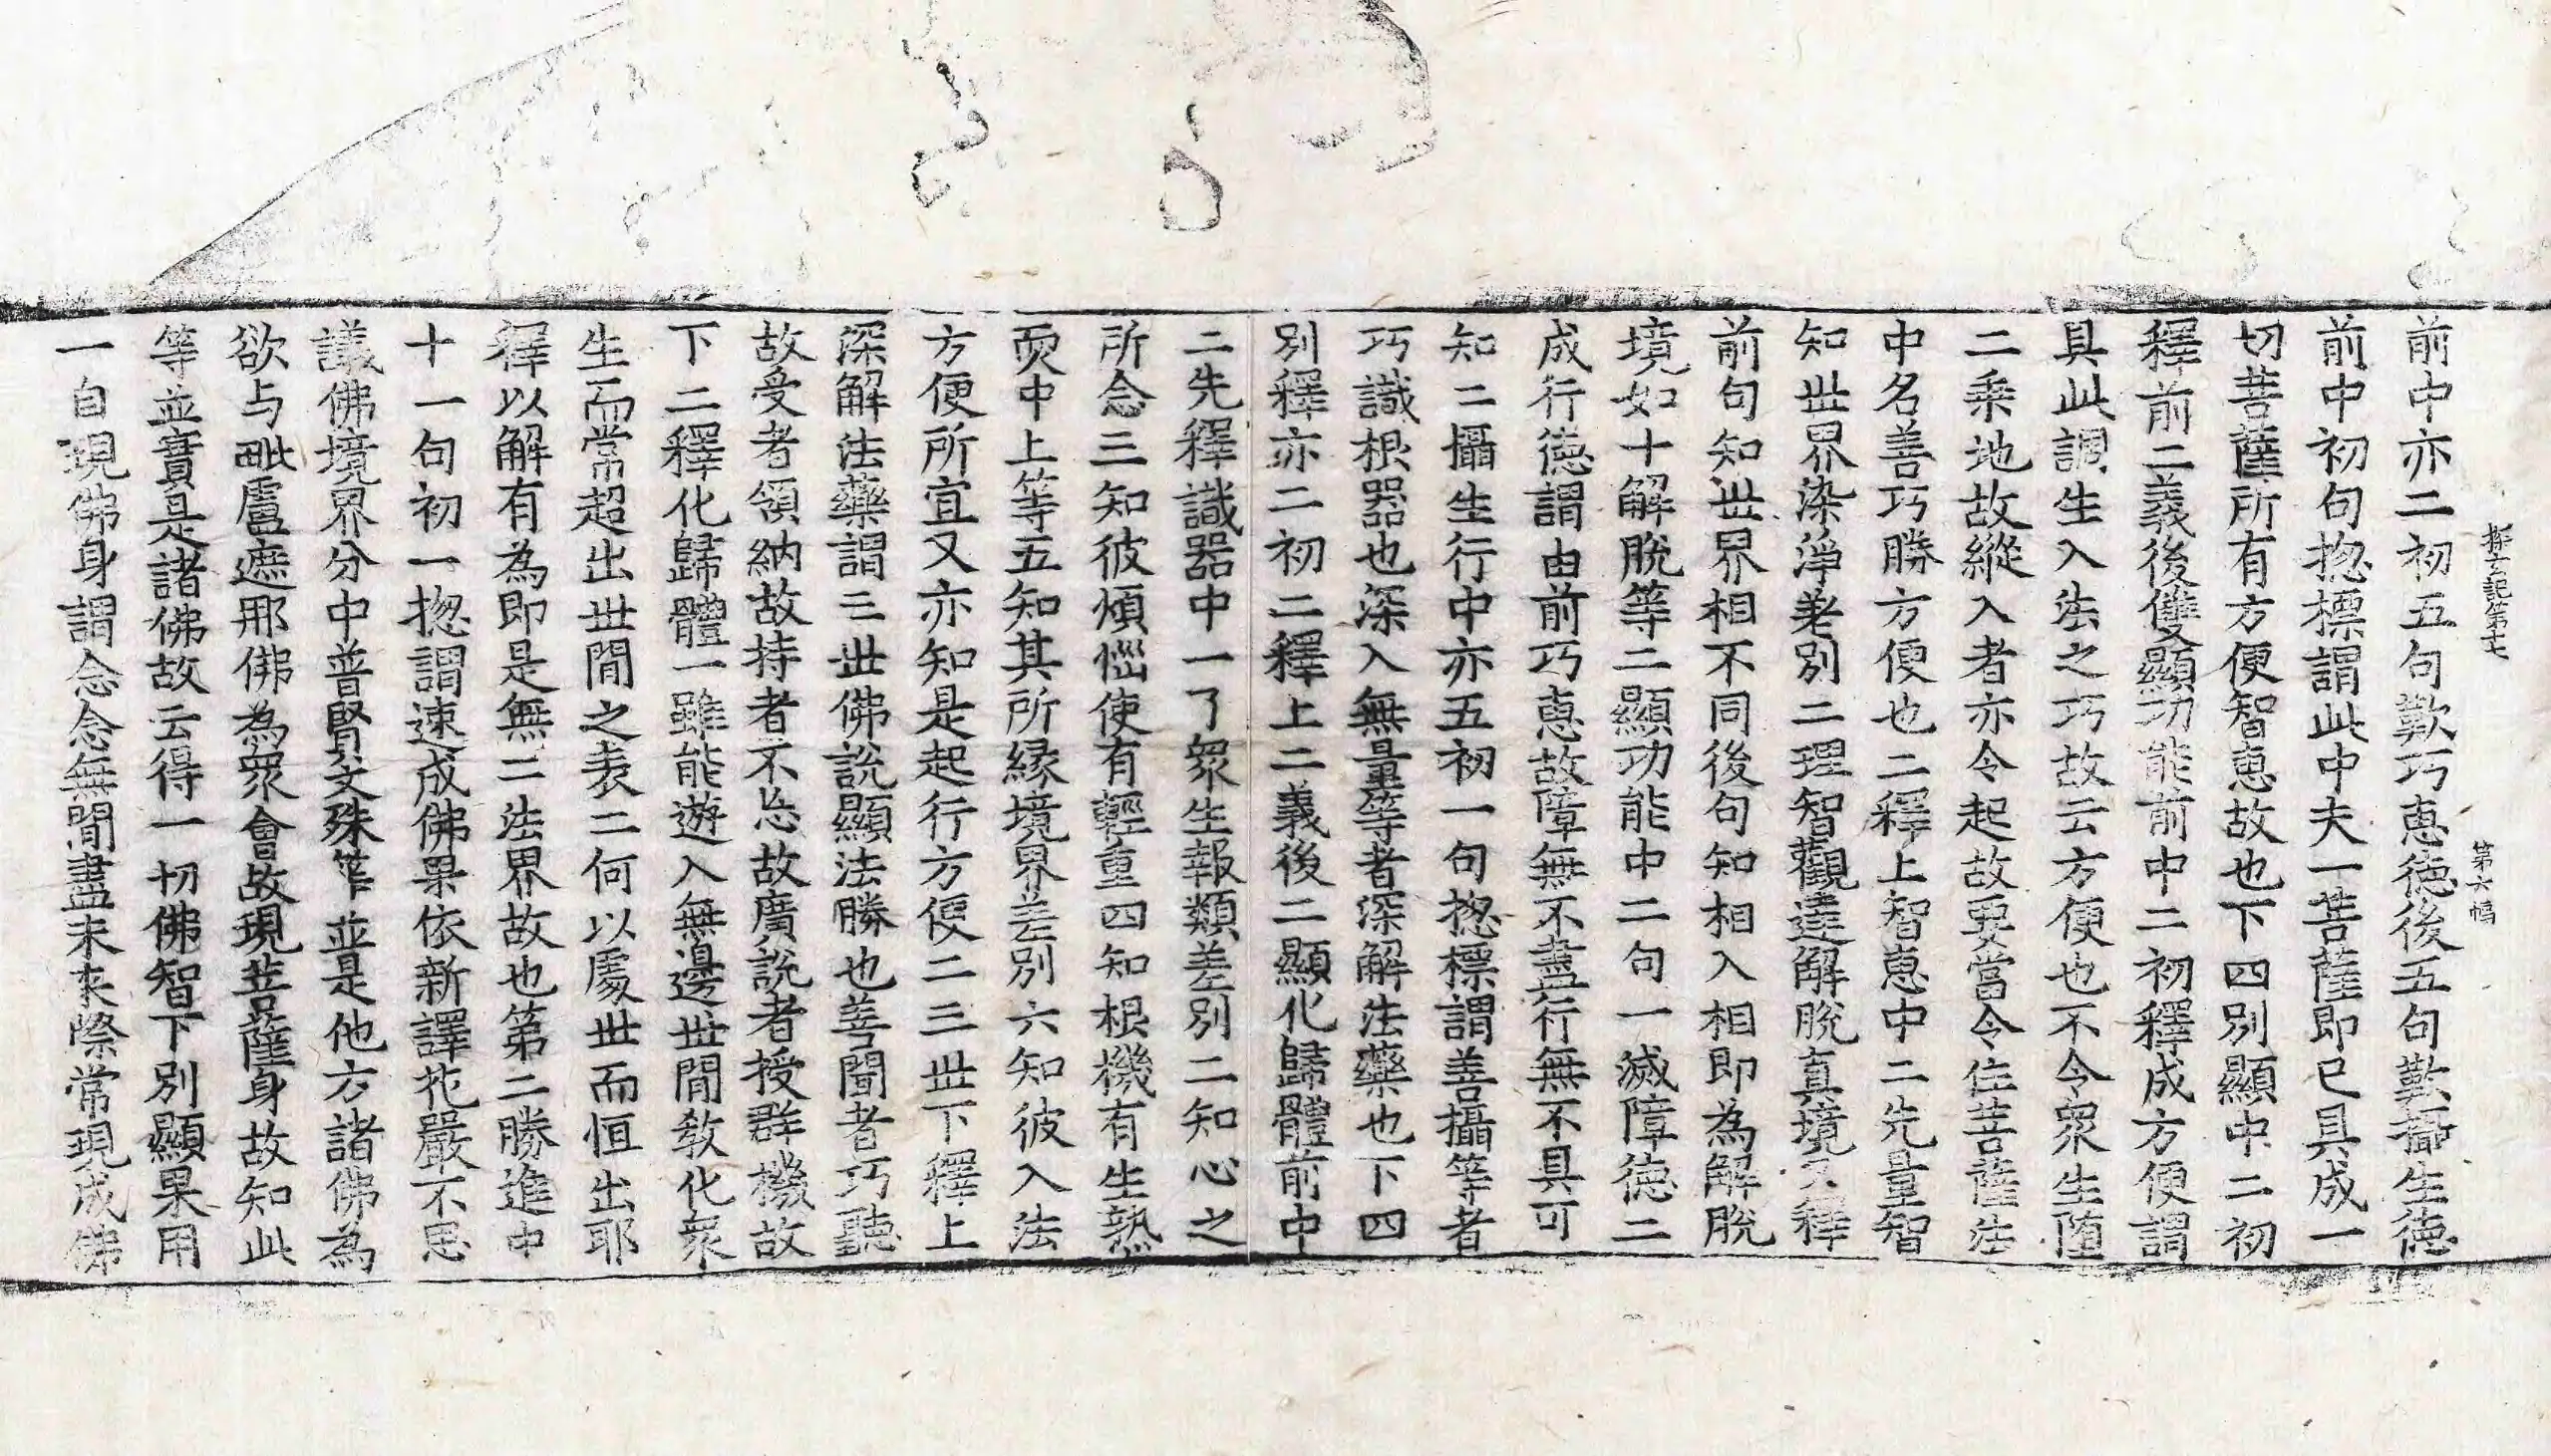 探玄記第十七　第六幅
前中亦二初五句歎巧惠德後五句歎攝生德
前中初句揔標謂此中夫一菩薩即已具成一
切菩薩所有方便智惠故也下四別顯中二初
釋前二義後雙顯功能前中二初釋成方便謂
具此調生入法之巧故云方便也不令衆生墮
二乗地故縱入者亦令起故要當令住菩薩法
中名善巧勝方便也二釋上智惠中二先量智
知世界染淨差別二理智觀達解脫真境又釋
前句知世界相不同後句知相入相即為解脫
境如十解脫等二顯功能中二句一滅障德二
成行德謂由前巧惠故障無不盡行無不具可
知二攝生行中亦五初一句揔標謂善攝等者
巧識根器也深入無量等者深解法藥也下四
別釋亦二初二釋上二義後二顯化歸體前中
二先釋識器中一了衆生報類差別二知心之
所念三知彼煩惱使有輕重四知根機有生熟
耎中上等五知其所縁境界差別六知彼入法
方便所宜又亦知是起行方便二三世下釋上
深解法藥謂三世佛說顯法勝也善聞者巧聽
故受者領納故持者不忘故廣說者授群機故
下二釋化歸體一雖能遊入無邊世間敎化衆
生而常超出世間之表二何以處世而恒出耶
釋以解有為即是無二法界故也第二勝進中
十一句初一揔謂速成佛果依新譯花嚴不思
議佛境界分中普賢文殊等並是他方諸佛為
欲与毗盧遮那佛為衆會故現菩薩身故知此
等並實是諸佛故云得一切佛智下別顯果用
一自現佛身謂念念無間盡未來際常現成佛